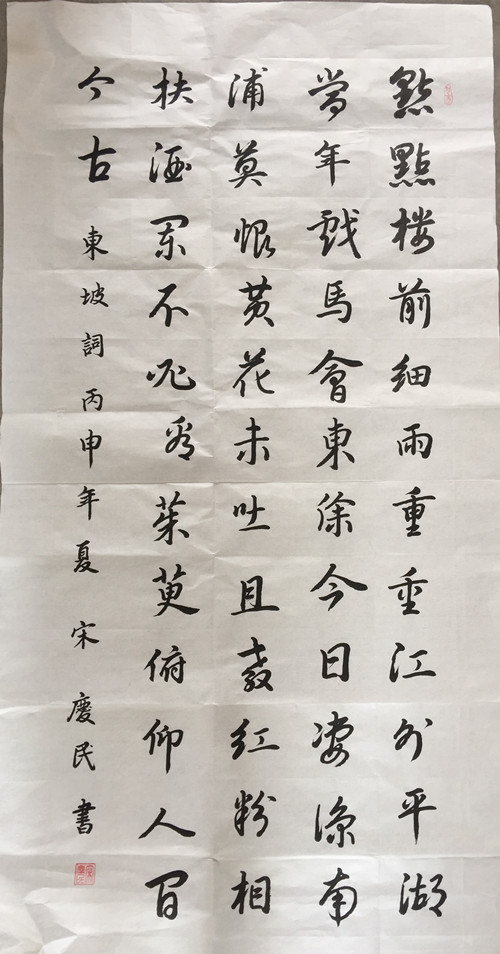 點點楼前細雨重重江外平湖
當年戲馬會東徐今日凄涼南
浦莫恨黄花未吐且教紅粉相
扶酒闌不必看茱萸俯仰人間
今古 東坡詞丙申年夏 宋慶民書